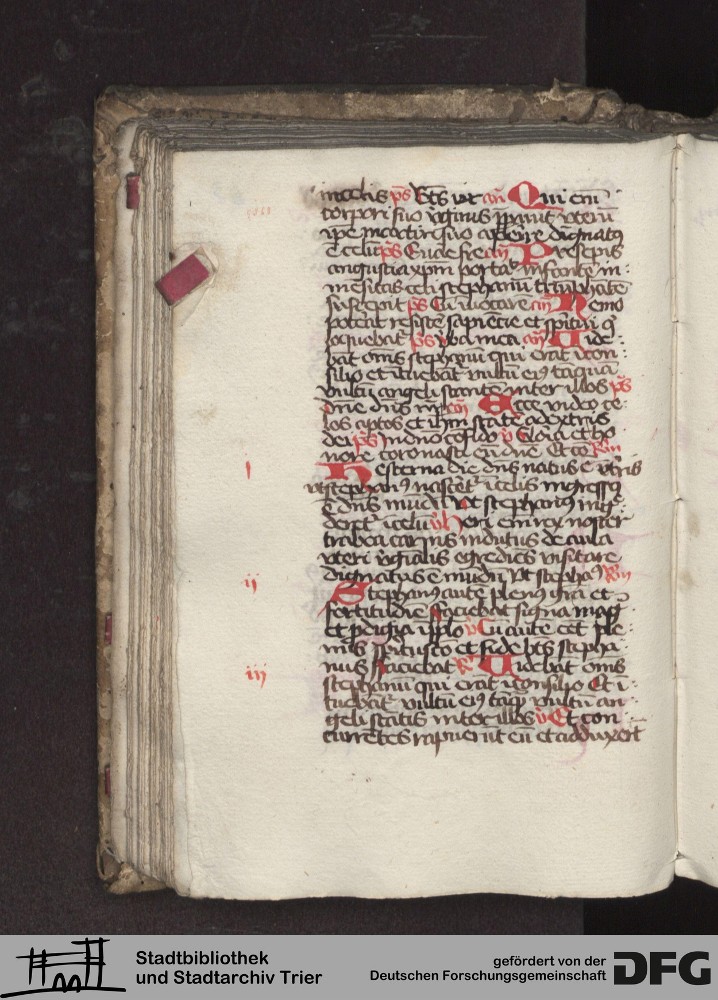 in celis ps Bts vir an Qui em
corpori suo vginis ppauit vteru
ipe martiri suo aperire dignatus
e celu ps Qui de fre an Presepis
angustia xpm portat infante in
mesitas celi stephanu triuphate
suscepit ps Cu iuocare an Nemo
poterat resiste sapiencie et spiritui q
loquebat ps vba mea an Uide
bat oms stephanu qui erat i con
silio et ituebat vultu eius taqua
vultu angeli stantis inter illos ps
Dne dns nr an Ecce video ce
los aptos et ihm state a dextris
dei ps In dno cofido v Gloria et ho
nore coronasti eu dne Et co Rm
i
Hesterna die dns natus e i tris
vt stephanus nascet i celis ingressus
e dns mudu vt stephanus ing
deret i celu v Heri em rex noster
trabea carnis indutus de aula
vteri vginalis egrediens visitare
dignatus e mudu Vt stephanus Rm
ii
Stephanus aute plenus gra et
fortitudine faciebat signa mag
et pdigia i pplo v Cu aute eet ple
nus spiritu sco et fide bts stepha
nus Faciebat R Uidebat oms
iii
stephanu qui erat i consilio Et i
tuebat vultu eius taq vultu an
geli statis inter illos v Et con
currentes rapuerut eu et adduxert
Stadtbibliothek
und Stadtarchiv Trier
gefördert von der
Deutschen Forschungsgemeinschaft
DFG